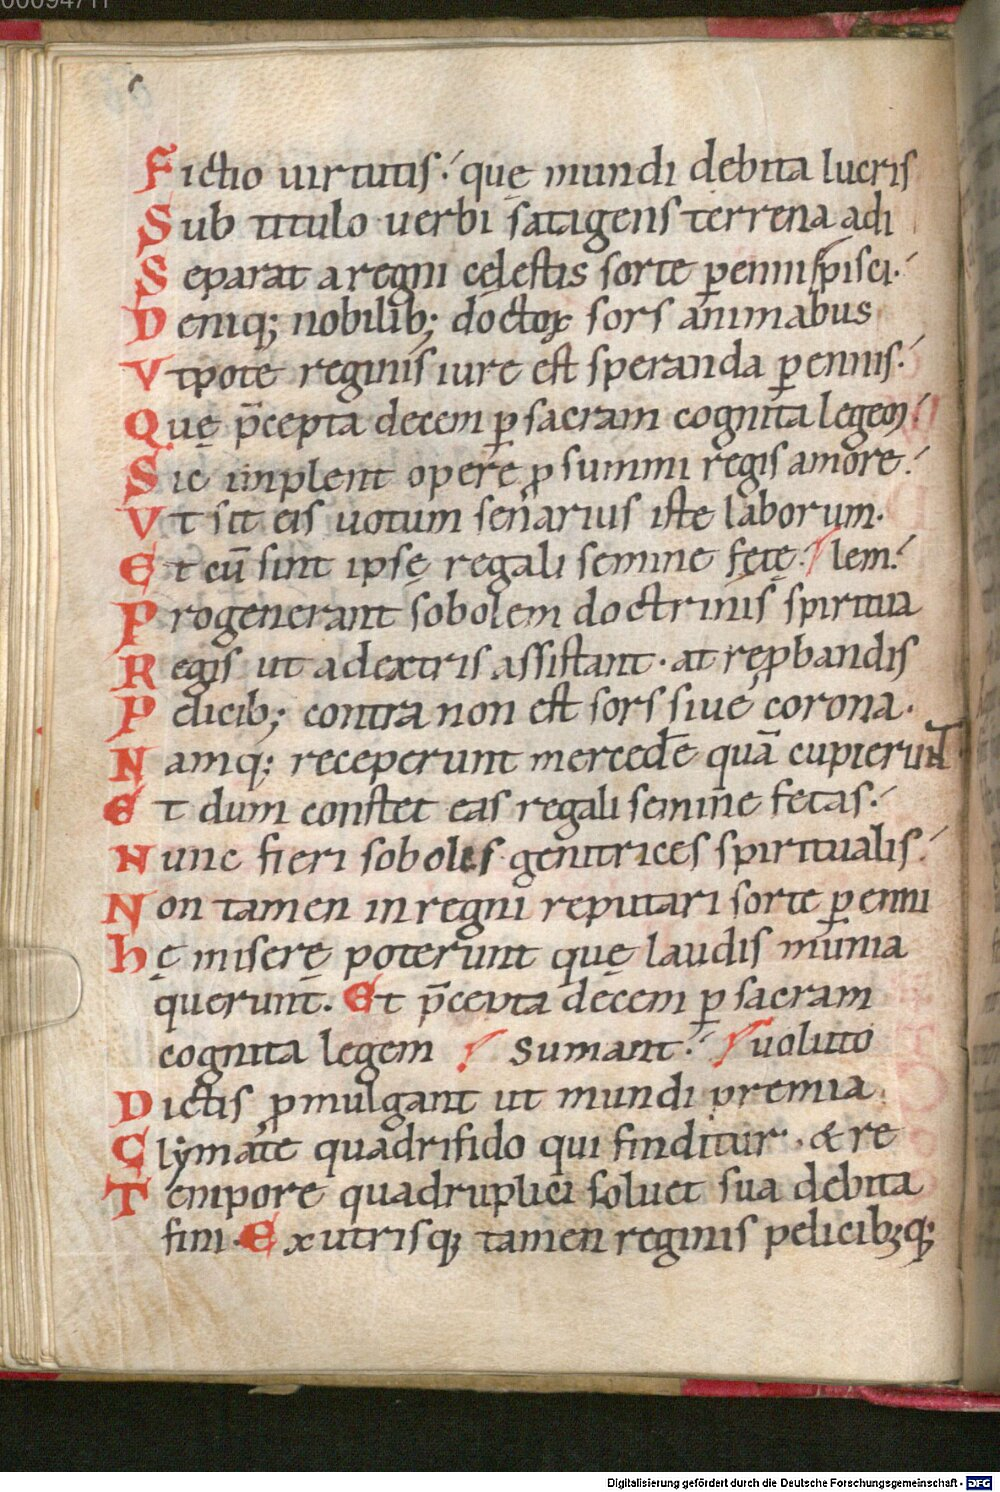 00094711
Fictio uirtutis. quę mundi debita lucris
Sub titulo uerbi satagens terrena adi
Separat a regni cęlestis sorte ꝑenni / pisci.
Deniq; nobilib; doctoꝝ sors animabus
Vtpote reginis iure est speranda ꝑennis.
Quę p̄cepta decem ꝑ sacram cognita legem.
Sic implent opere ꝓ summi regis amore.
Vt sit eis uotum senarius iste laborum.
Et cū sint ipsę regali semine fętę. / lem.
Progenerant sobolem doctrinis spiritua
Regis ut a dextris assistant. at reꝓbandis
Pelicib; contra non est sors siue corona.
Namq; receperunt mercedē quā cupierunt
Et dum constet eas regali semine fetas.
Nunc fieri soboles genitrices spiritualis.
Non tamen in regni reputari sorte ꝑenni
hę miserę poterunt quę laudis munia
querunt. Et p̄cepta decem ꝑ sacram
cognita legem / Sumant. / uoluto
Dictis ꝓmulgant ut mundi premia
Clymate quadrifido qui finditur. & re
Tempore quadruplici soluet sua debita
fini. Ex utrisq; tamen reginis pelicib;q;
Digitalisierung gefördert durch die Deutsche Forschungsgemeinschaft - DFG